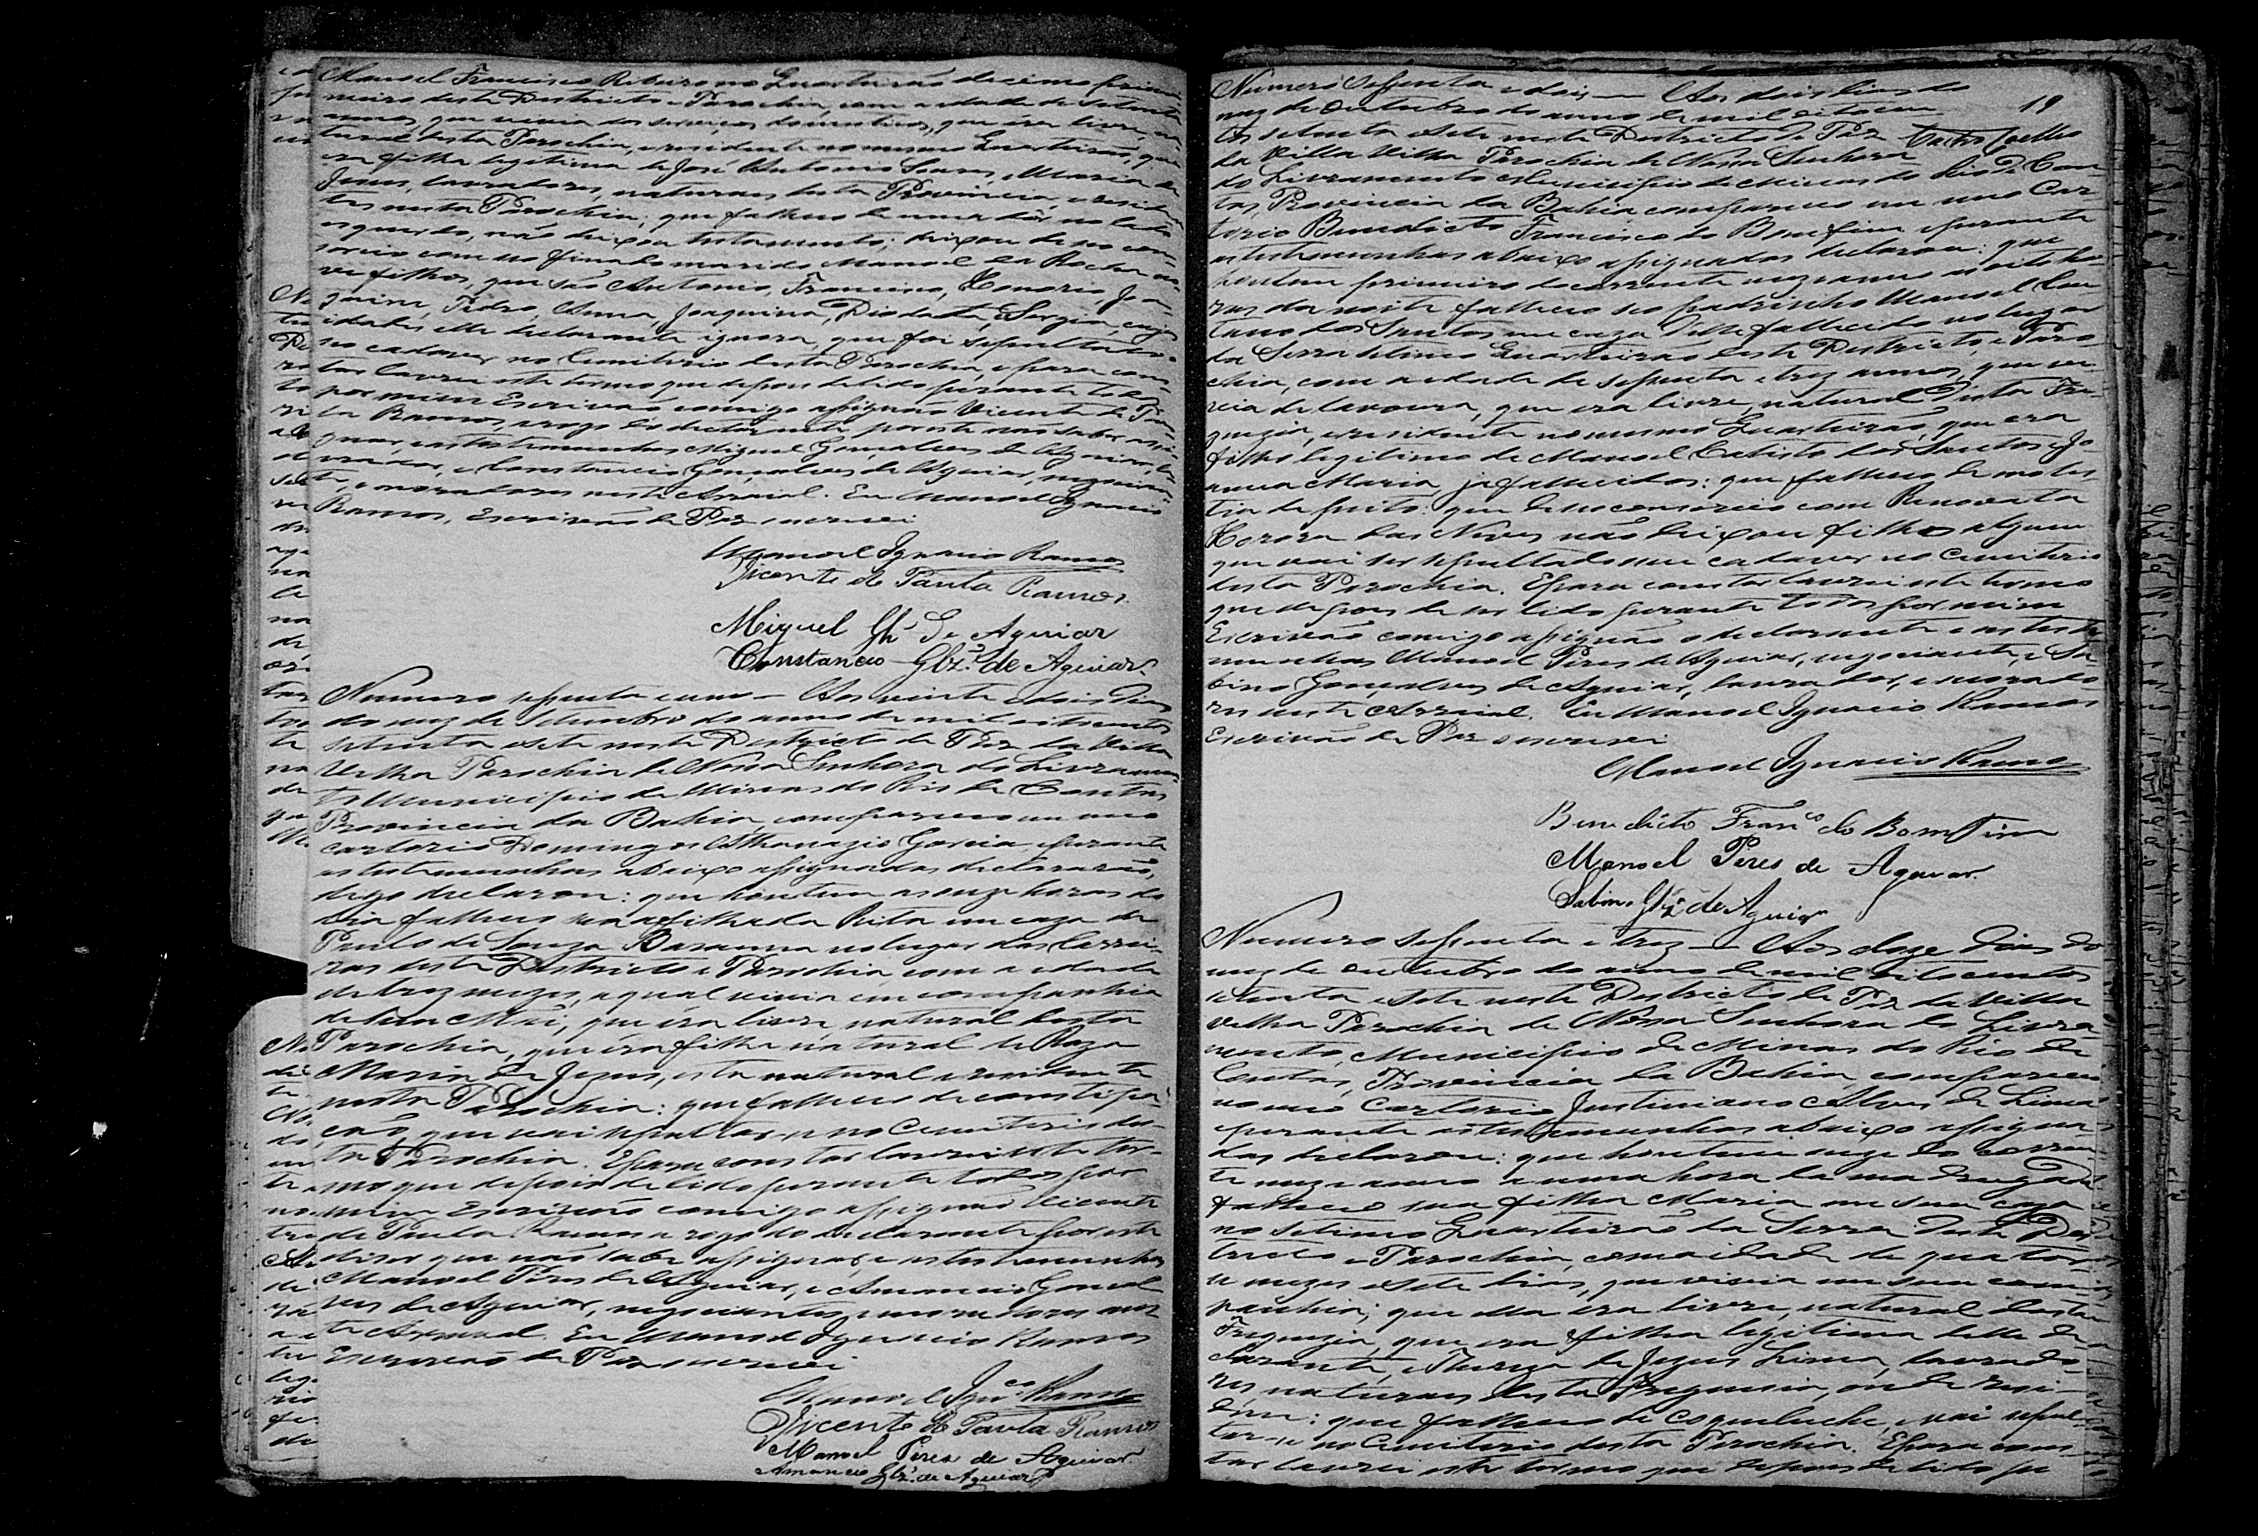 Manoel Francisco Ribeiro no Quarteirão decimo primei
meiro deste Districto e Parochia, com a idade de setenta
annos, que vivia dos serviços domesticos, que éra livre, na
tural desta Parochia, e residente no mesmo Quarteirão, que
era filha legitima de José Antonio Soares, e Maria de
Jesus, lavradores, naturaes desta Provincia, e residen
tes nesta Parochia; que falleceu de uma dôr no lado
esquerdo, não deixou testamento: deixou de seo con
sorcio com no finado marido Manoel da Rocha no
ve filhos, que são Antonio, Francisco, Honorio, Joa
quim, Pedro, Anna, Joaquina, Deodata, Sergia, cujas
idades elle declarante ignora, que foi sepultado
no cadaver no Cemiterio desta Parochia, e para cons
tar lavrei este termo que depois de lido perante todos
por mim Escrivão comigo assignão Vicente de Pau
la Ramos, a rogo do declarante por este não saber assi
gnar, e as testemunhas Miguel Gonçalves de Aguiar, la
vrador, e Constancio Gonçalves de Aguiar, negocian
te, e moradores neste Arraial. Eu Manoel Ignacio
Ramos, Escrivão de Paz escrevi
Manoel Ignacio Ramos
Vicente de Paula Ramos.
Miguel Glz de Aguiar
Constancio Glz. de Aguiar
Numero sessenta e um — Aos vinte e dois dias
do mez de Setembro do anno de mil oitocentos
setenta e sete neste Districto de Paz da Villa
Velha Parochia de Nossa Senhora do Livramen
to Municipio de Minas do Rio de Contas
Provincia da Bahia, compareceo em meo
cartorio Domingos Athanazio Garcia e perante
as testemunhas abaixo assignadas declararão,
digo declarou: que hontem as onze horas do
dia falleceo sua afilhada Rita em caza de
Paulo de Souza Barauna no lugar das Carrei
ras deste Districto e Parochia, com a idade
de trez mezes, a qual vivia em companhia
de sua Mãi, que éra livre natural desta
Parochia, que éra filha natural de Roza
Maria de Jezus, esta natural e residente
nesta Parochia: que falleceo de constipa
ção, que vai sepultar-se no Cemiterio des
ta Parochia. E para constar lavrei este ter
mo que depois de lido perante todos por
mim Escrivão comigo assignão Vicente
de Paula Ramos a rogo do declarante por este
dizer que não sabe assignar, e as testemunhas
Manoel Pires de Aguiar, e Amancio Gonçal
ves de Aguiar, negociantes, e moradores nes
te Arraial. Eu Manoel Ignacio Ramos
Escrivão de Paz escrevi
Manoel Ignco Ramos
Vicente de Paula Ramos
Manoel Peres de Aguiar
Amancio Glz. de Aguiar
19
Castro Coelho
Numero sessenta e dois — Aos dois dias do
mez de Outubro do anno de mil oitocen
tos setenta e sete neste Districto de Paz
da Villa Velha Parochia de Nossa Senhora
do Livramento Municipio de Minas do Rio de Con
tas, Provincia da Bahia compareceo em meo Car
torio Benedicto Francisco do Bomfim e perante
as testemunhas abaixo assignadas declarou: que
hontem primeiro do corrente mez e anno as oito ho
ras da noite falleceo seo padrinho Manoel Cae
tano dos Santos em caza delle fallecido no lugar
da Serra setimo Quarteirão deste Districto, e Paro
chia, com a idade de sessenta e trez annos, que vi
via de lavoura, que era livre, natural desta Fre
guezia, e residente no mesmo Quarteirão, que era
filho legitimo de Manoel Calisto dos Santos e Jo
anna Maria já fallecidos: que falleceo de moles
tia de peito: que de seo consorcio com Renovata
Honora das Neves não deixou filho algum
que vai ser sepultado seu cadaver no Cemiterio
desta Parochia. E para constar lavrei este termo
que depois de ser lido perante todos por mim
Escrivão comigo assignão o declarante e as teste
munhas Manoel Peres de Aguiar, negociante, e Sa
bino Gonçalves de Aguiar, lavrador, e morado
res neste Arraial. Eu Manoel Ignacio Ramos
Escrivão de Paz escrevi
Manoel Ignacio Ramos
Benedicto Franco do Bomfim
Manoel Peres de Aguiar.
Sabino Glz. de Aguiar
Numero sessenta e trez — Aos doze dias do
mez de Outubro do anno de mil oitocentos
setenta e sete neste Districto de Paz da Villa
Velha Parochia de Nossa Senhora do Livra
mento, Municipio de Minas do Rio de
Contas, Provincia da Bahia, compareceo
no meo Cartorio Justiniano Alves de Lima
e perante as testemunhas abaixo assigna
das declarou: que hontem onze do corren
te mez e anno a uma hora da madrugada
falleceo sua filha Maria em sua caza
no setimo Quarteirão da Serra deste Dis
tricto e Parochia, com a idade de quator
ze mezes e sete dias, que vivia em sua com
panhia; que ella era livre, natural desta
Freguezia, que era filha legitima delle de
clarante, e Thereza de Jezus Lima, lavrado
res, naturaes desta Freguezia, onde resi
dem: que falleceo de coqueluche, e vai sepul
tar-se no Cemiterio desta Parochia. E para cons
tar lavrei este termo que depois de lido pe